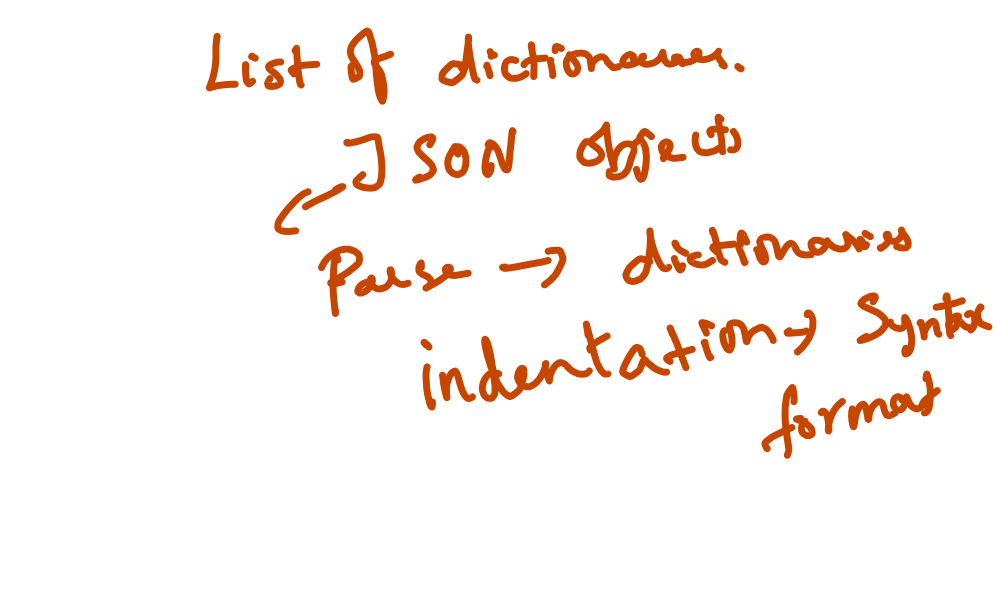 List of dictionaries.
JSON Objects
Parse → dictionaries
indentation → Syntax
format